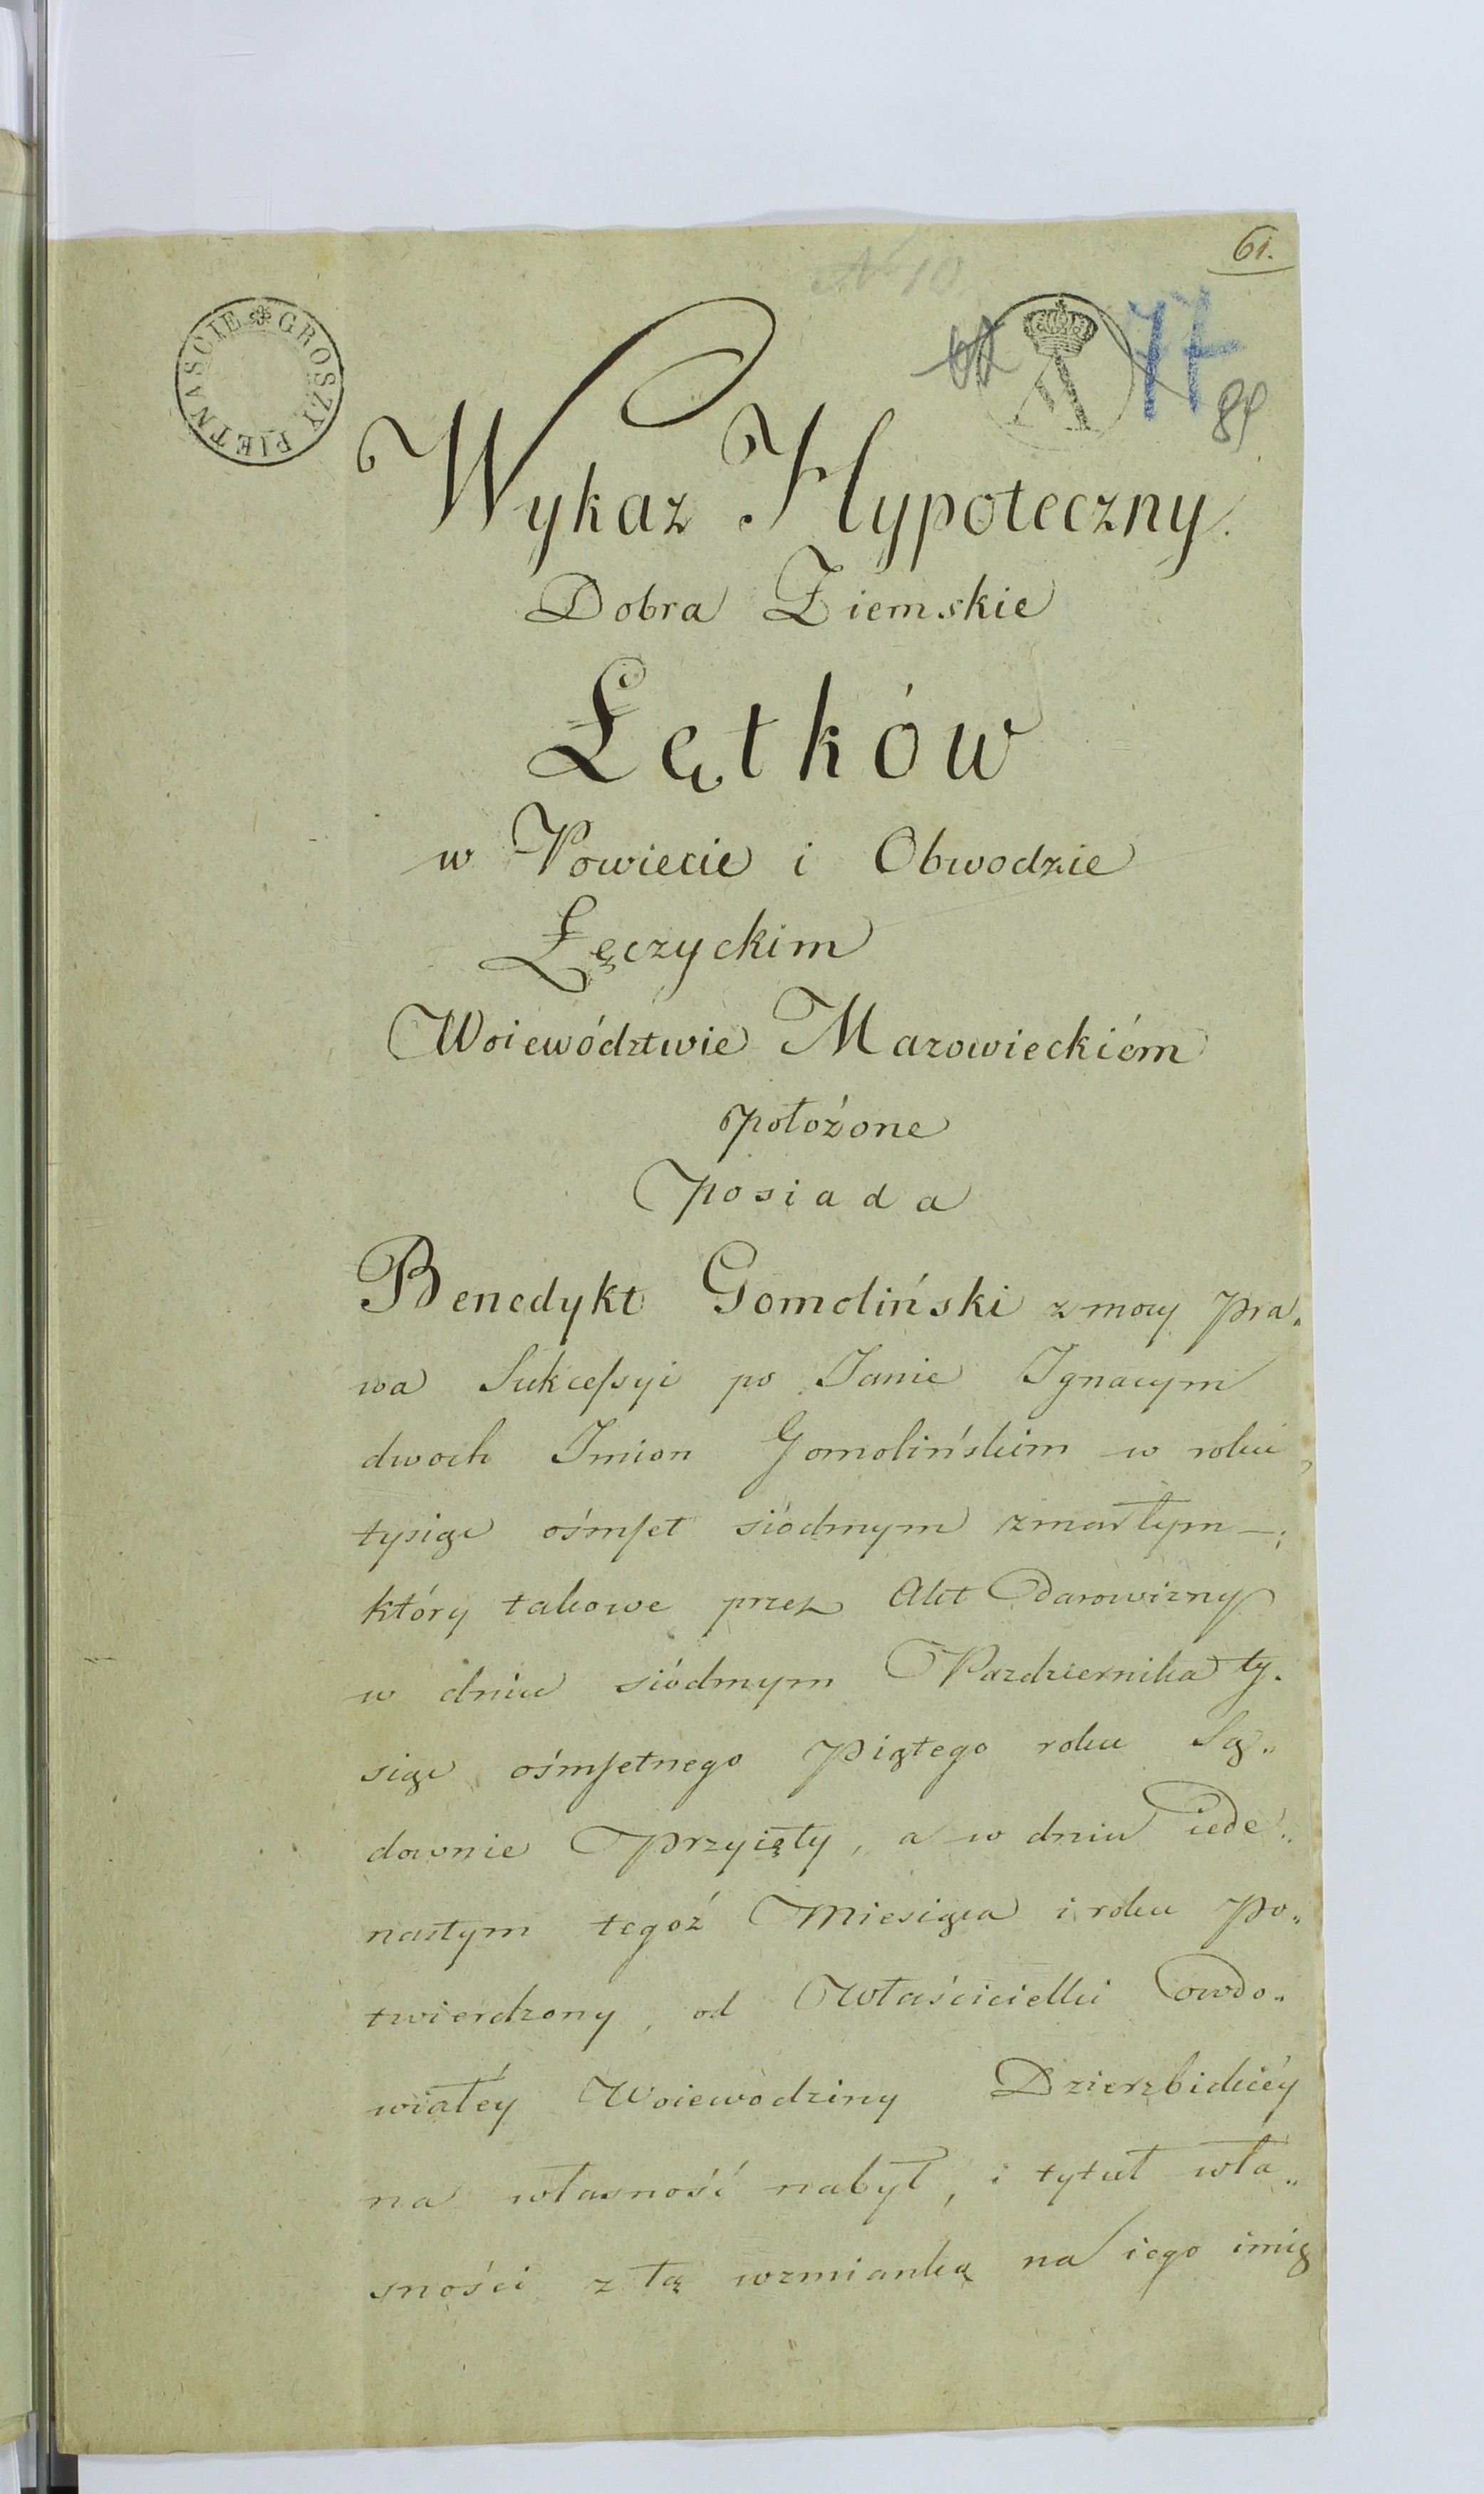 61.
No 10
77
89
GROSZY PIĘTNAŚCIE
Wykaz Hypoteczny.
Dobra Ziemskie
Łętków
w Powiecie i Obwodzie
Łęczyckim
Woiewództwie Mazowieckiém
położone
posiada
Benedykt Gomoliński z mocy pra„
wa Sukceſsyi po Janie Ignacym
dwoch Imion Gomolińskim w roku
tysiąc ośmſet siódmym zmarłym —;
który takowe przez Akt Darowizny
w dniu siódmym Pazdziernika ty„
siąc ośmſetnego piątego roku Są„
downie przyięty, a w dniu iede„
nastym tegoż Miesiąca i roku po„
twierdzony, od Właścicielki owdo„
wiałéy Woiewodziny Dzierzbickiéy
na własność nabył, i tytuł wła„
sności z tą wzmianką na iego imię